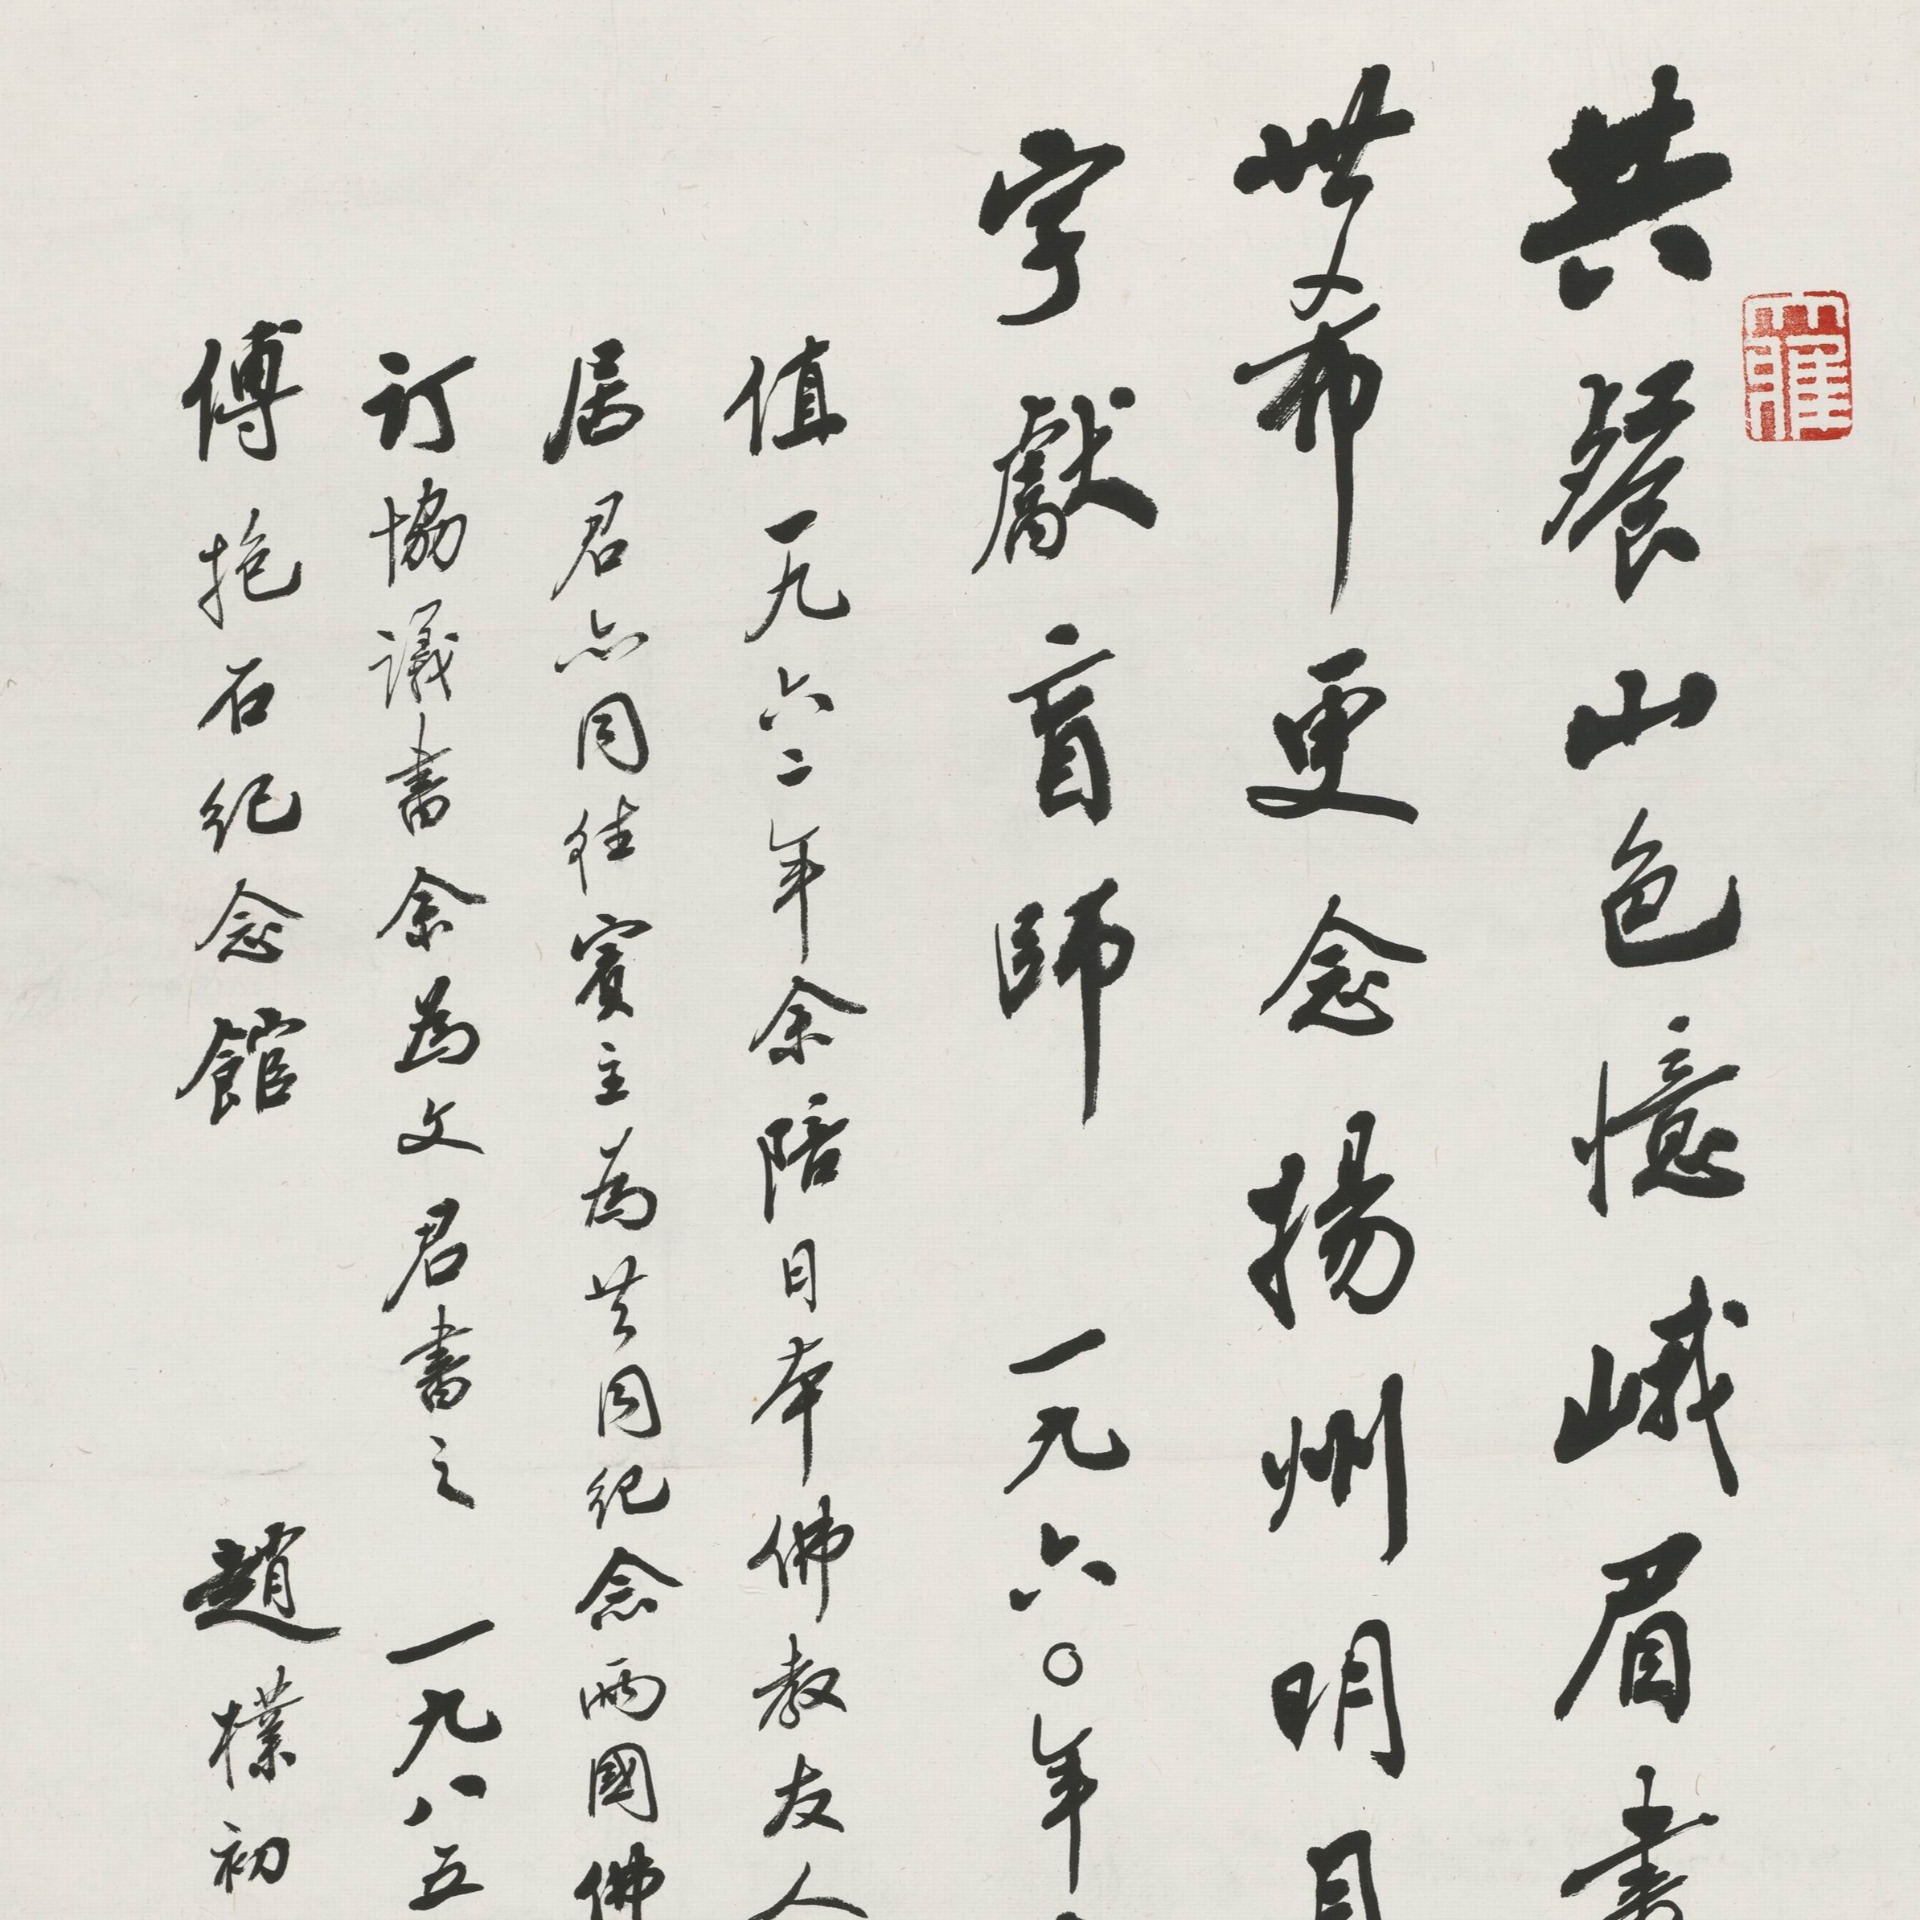 共餐山色憶峨眉書
世希更念揚州明月
字獻盲師 一九六〇年
值一九六二年余陪日本佛教友人
居君亦同往賓主為共同紀念兩國佛
訂協議書余為文君書之 一九八五
傅抱石紀念館 趙樸初